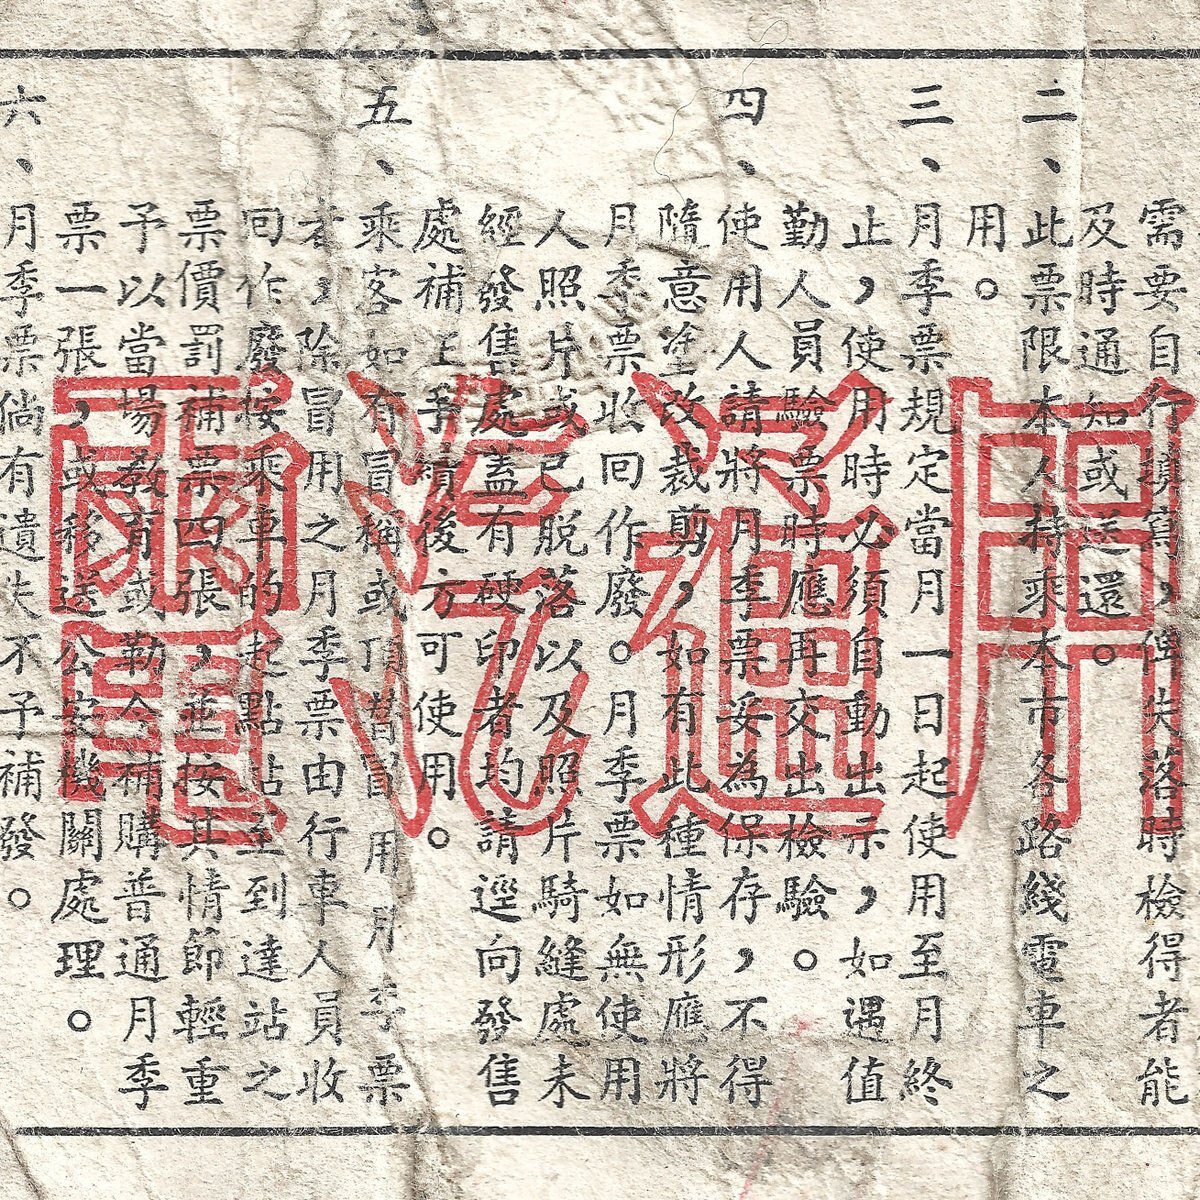 需要自行填寫，俾失落時檢得者能
及時通知或送還。
二、此票限本人持乘本市各路綫電車之
用。
三、月季票規定當月一日起使用至月終
止，使用時必須自動出示，如遇值
勤人員驗票時應再交出檢驗。
四、使用人請將月季票妥為保存，不得
隨意塗改裁剪，如有此種情形應將
月季票收回作廢。月季票如無使用
人照片或已脫落以及照片騎縫處未
經發售處蓋有硬印者均請逕向發售
處補上手續後方可使用。
五、乘客如有冒稱或頂替冒用月季票
者，除冒用之月季票由行車人員收
回作廢按乘車的起點站至到達站之
票價罰補票四張，並按其情節輕重
予以當場教育或勒令補購普通月季
票一張，或移送公安機關處理。
六、月季票倘有遺失不予補發。